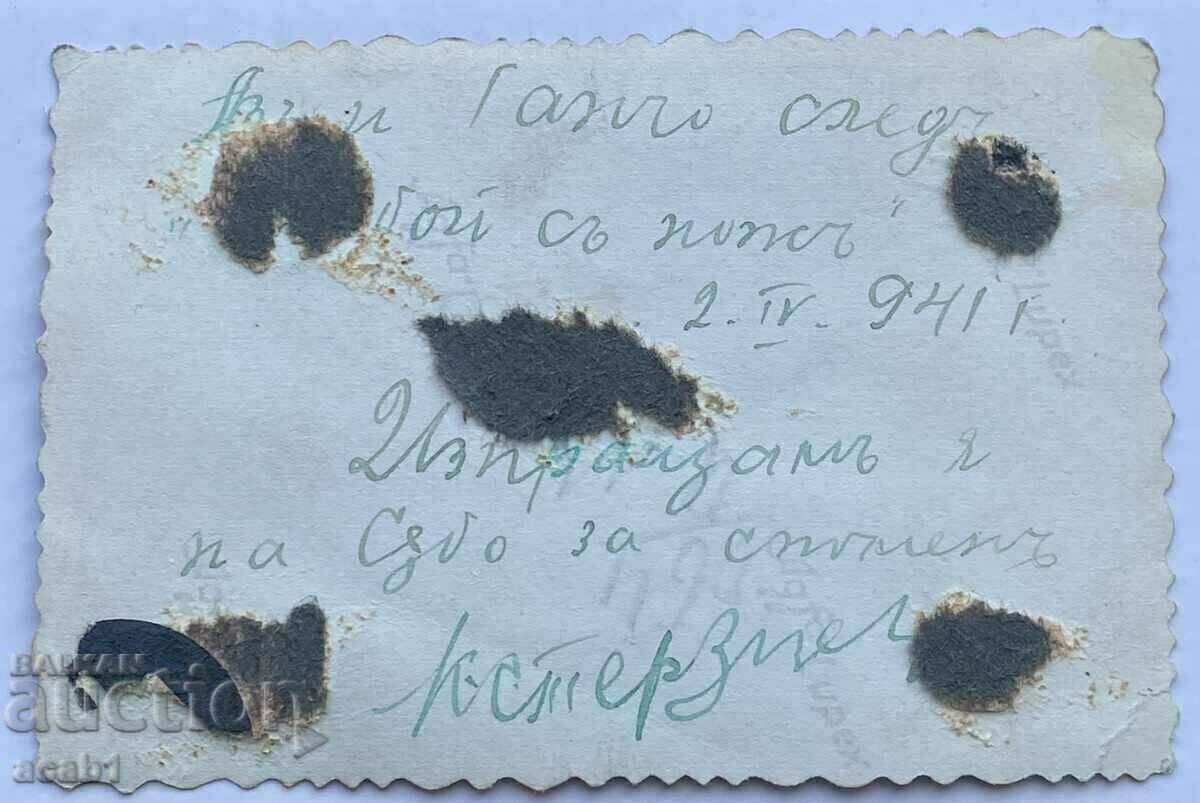 Азъ и Ганчо следъ
"бой съ ножъ"
2. IV. 941 г.
Изпращамъ я
на Събо за споменъ
BALKAN
auction
acab1